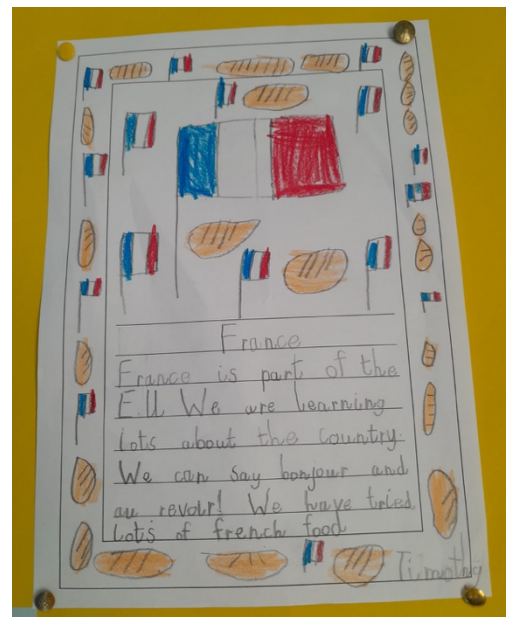 France
France is part of the
E.U We are learning
lots about the country.
We can say bonjour and
au revoir! We have tried
lots of french food
Timothy